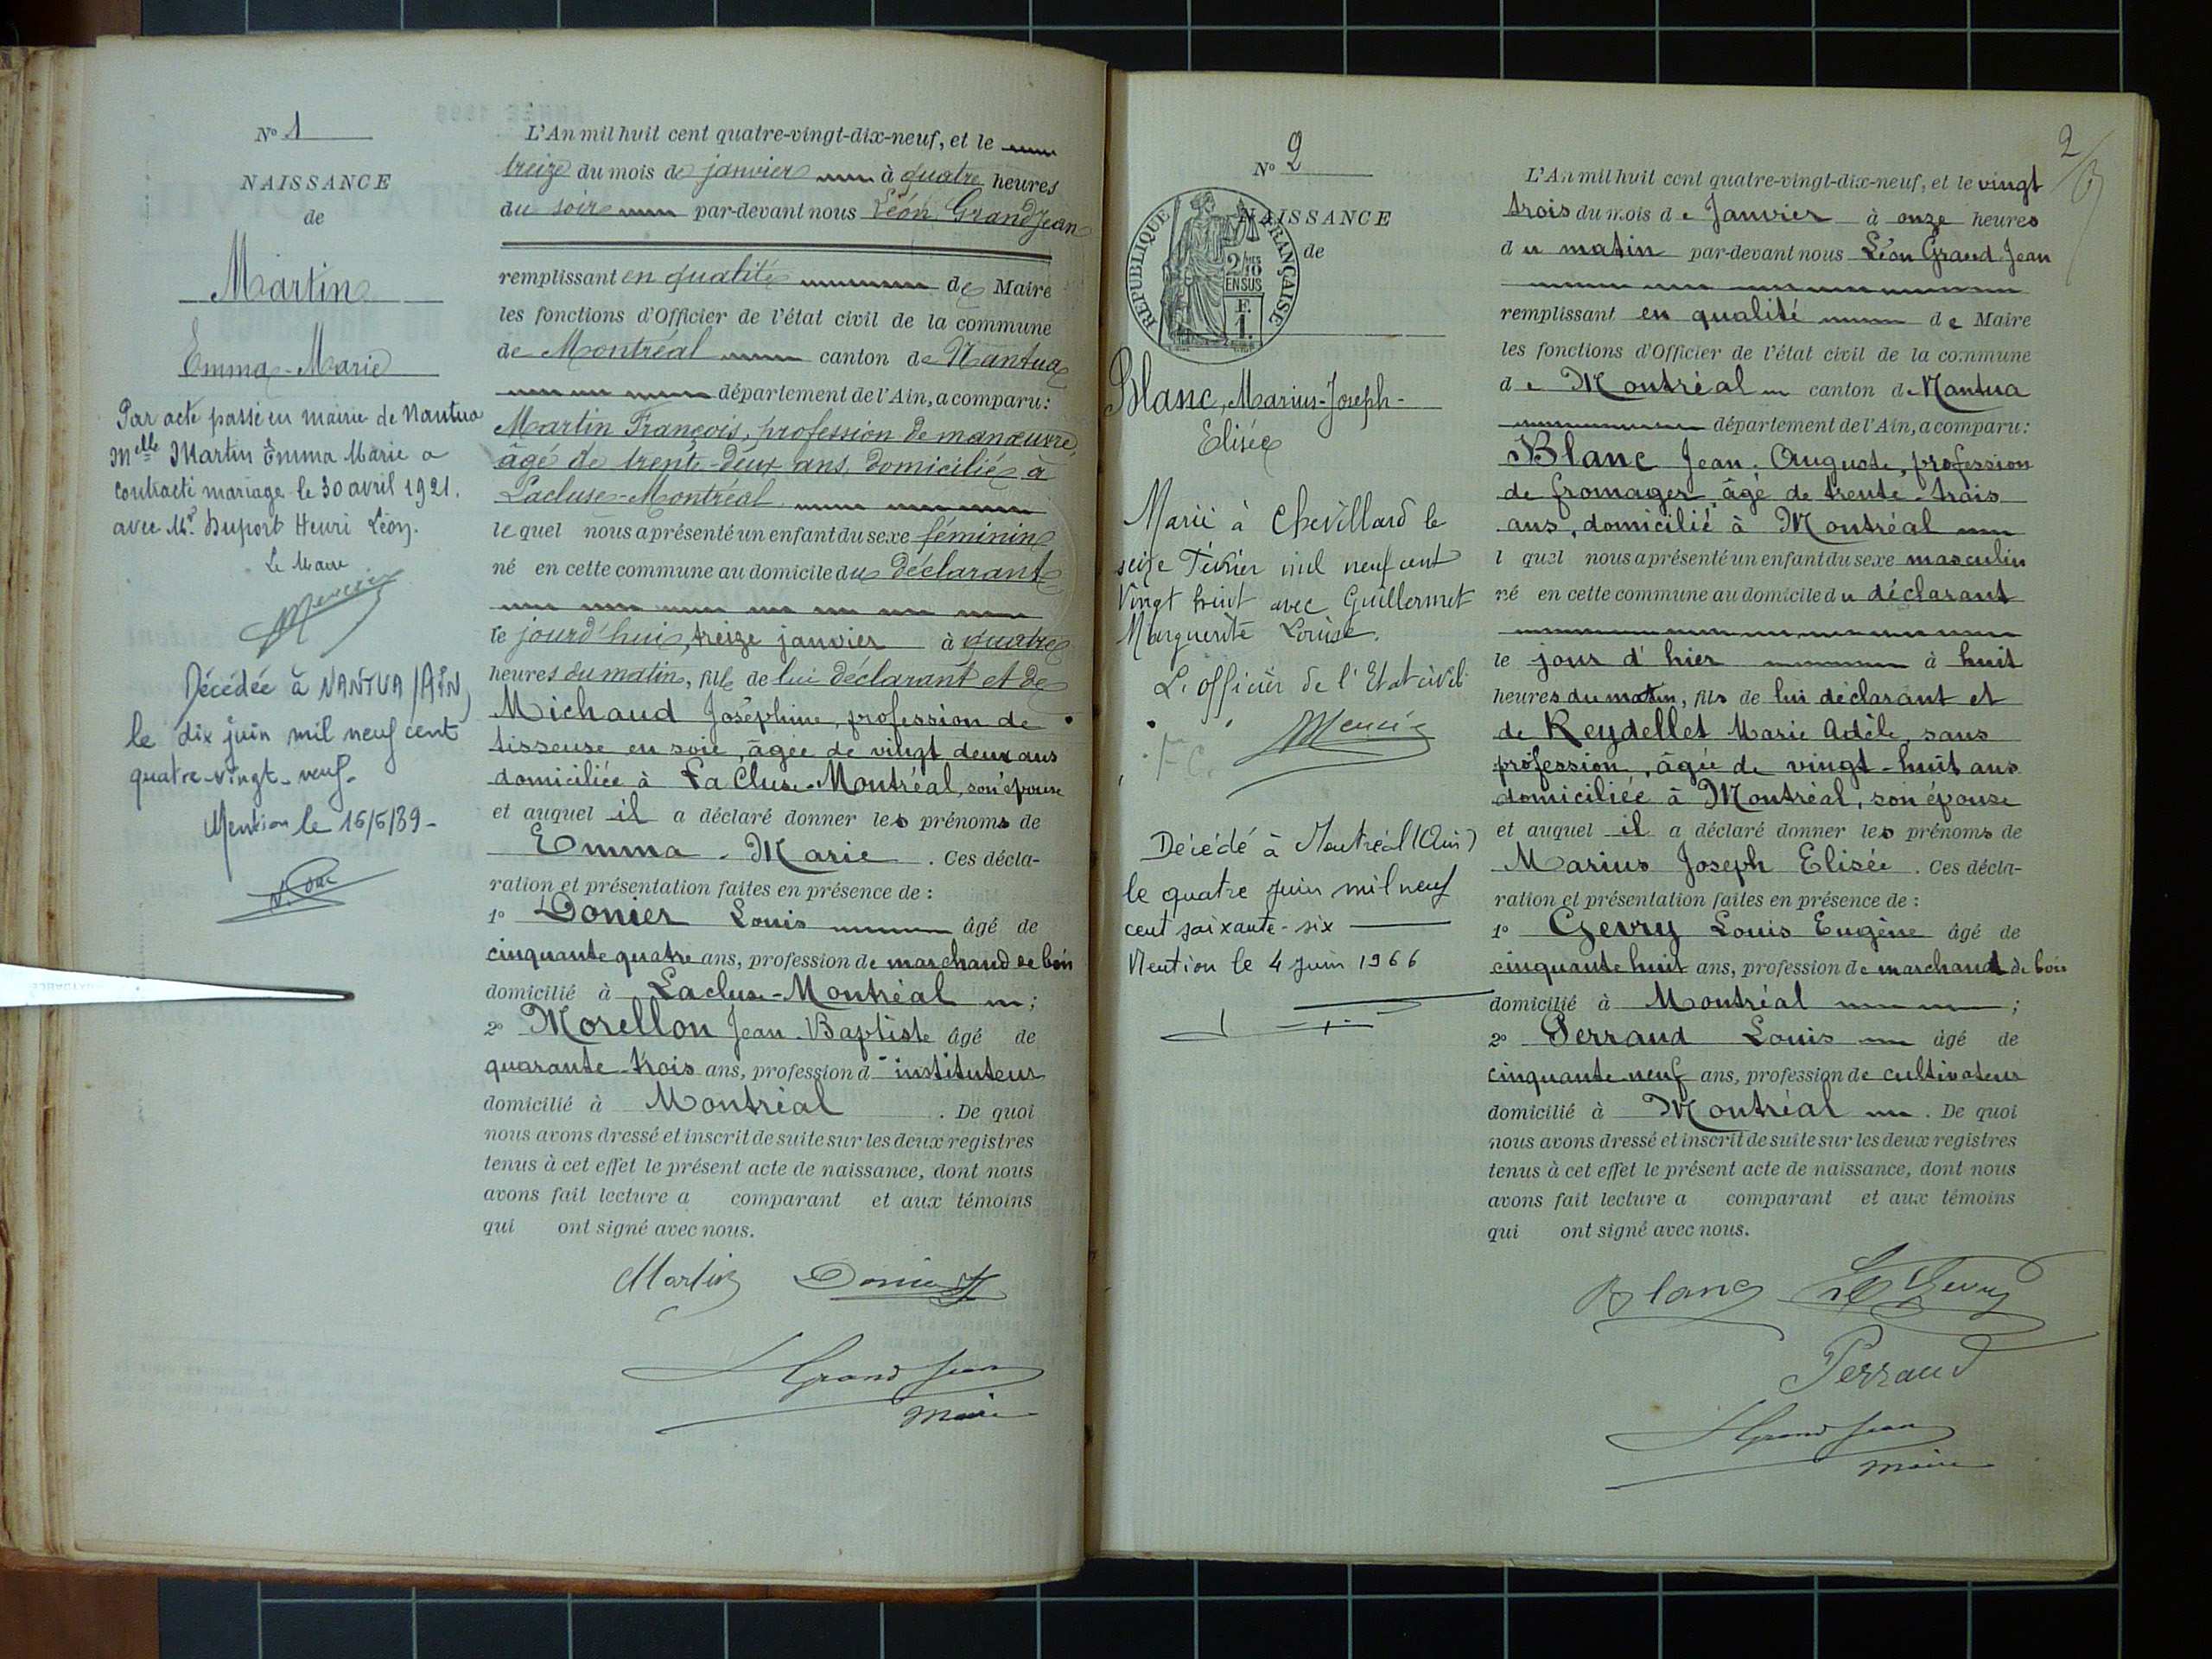 N° 1
NAISSANCE
de
Martin
Emma-Marie
Par acte passé en mairie de Nantua
Melle Martin Emma Marie a
contracté mariage le 30 avril 1921.
avec Mr. Duport Henri Léon.
Le Maire
Mercier
Décédée à NANTUA (AIN)
le dix juin mil neuf cent
quatre-vingt-neuf.
Mention le 16/6/89-
L'An mil huit cent quatre-vingt-dix-neuf, et le
treize du mois de janvier à quatre heures
du soir par-devant nous Léon GrandJean
remplissant en qualité de Maire
les fonctions d'Officier de l'état civil de la commune
de Montréal canton de Nantua
département de l'Ain, a comparu:
Martin François, profession de manœuvre,
âgé de trente-deux ans, domicilié à
Lacluse-Montréal
lequel nous a présenté un enfant du sexe féminin
né en cette commune au domicile du déclarant
le jourd'hui, treize janvier à quatre
heures du matin, fille de lui déclarant et de
Michaud Joséphine, profession de
tisseuse en soie, âgée de vingt deux ans
domiciliée à La Cluse-Montréal, son épouse
et auquel il a déclaré donner les prénoms de
Emma-Marie. Ces décla-
ration et présentation faites en présence de :
1° Donier Louis âgé de
cinquante quatre ans, profession de marchand de bois
domicilié à Lacluse-Montréal ;
2° Morellon Jean-Baptiste âgé de
quarante-trois ans, profession d'instituteur
domicilié à Montréal. De quoi
nous avons dressé et inscrit de suite sur les deux registres
tenus à cet effet le présent acte de naissance, dont nous
avons fait lecture a comparant et aux témoins
qui ont signé avec nous.
Martin Donier
LGrandJean
maire
2
N° 2
NAISSANCE
de
REPUBLIQUE FRANÇAISE
2/10
EN SUS
F.
1.
Blanc, Marius-Joseph-
Elisée
Marié à Chevillard le
seize Février mil neuf cent
vingt huit avec Guillermet
Marguerite Louise.
L'officier de l'Etat civil
Mercier
Décédé à Montréal (Ain)
le quatre juin mil neuf
cent soixante-six
Mention le 4 juin 1966
L'An mil huit cent quatre-vingt-dix-neuf, et le vingt
trois du mois de Janvier à onze heures
du matin par-devant nous Léon Grand Jean
remplissant en qualité de Maire
les fonctions d'Officier de l'état civil de la commune
de Montréal canton de Nantua
département de l'Ain, a comparu:
Blanc Jean Auguste, profession
de fromager, âgé de trente-trois
ans, domicilié à Montréal
lequel nous a présenté un enfant du sexe masculin
né en cette commune au domicile du déclarant
le jour d'hier à huit
heures du matin, fils de lui déclarant et
de Reydellet Marie Adèle, sans
profession, âgée de vingt-huit ans
domiciliée à Montréal, son épouse
et auquel il a déclaré donner les prénoms de
Marius Joseph Elisée. Ces décla-
ration et présentation faites en présence de :
1° Gevry Louis Eugène âgé de
cinquante huit ans, profession de marchand de bois
domicilié à Montréal ;
2° Perraud Louis âgé de
cinquante neuf ans, profession de cultivateur
domicilié à Montréal. De quoi
nous avons dressé et inscrit de suite sur les deux registres
tenus à cet effet le présent acte de naissance, dont nous
avons fait lecture a comparant et aux témoins
qui ont signé avec nous.
Blanc Gevry
Perraud
LGrandJean
maire